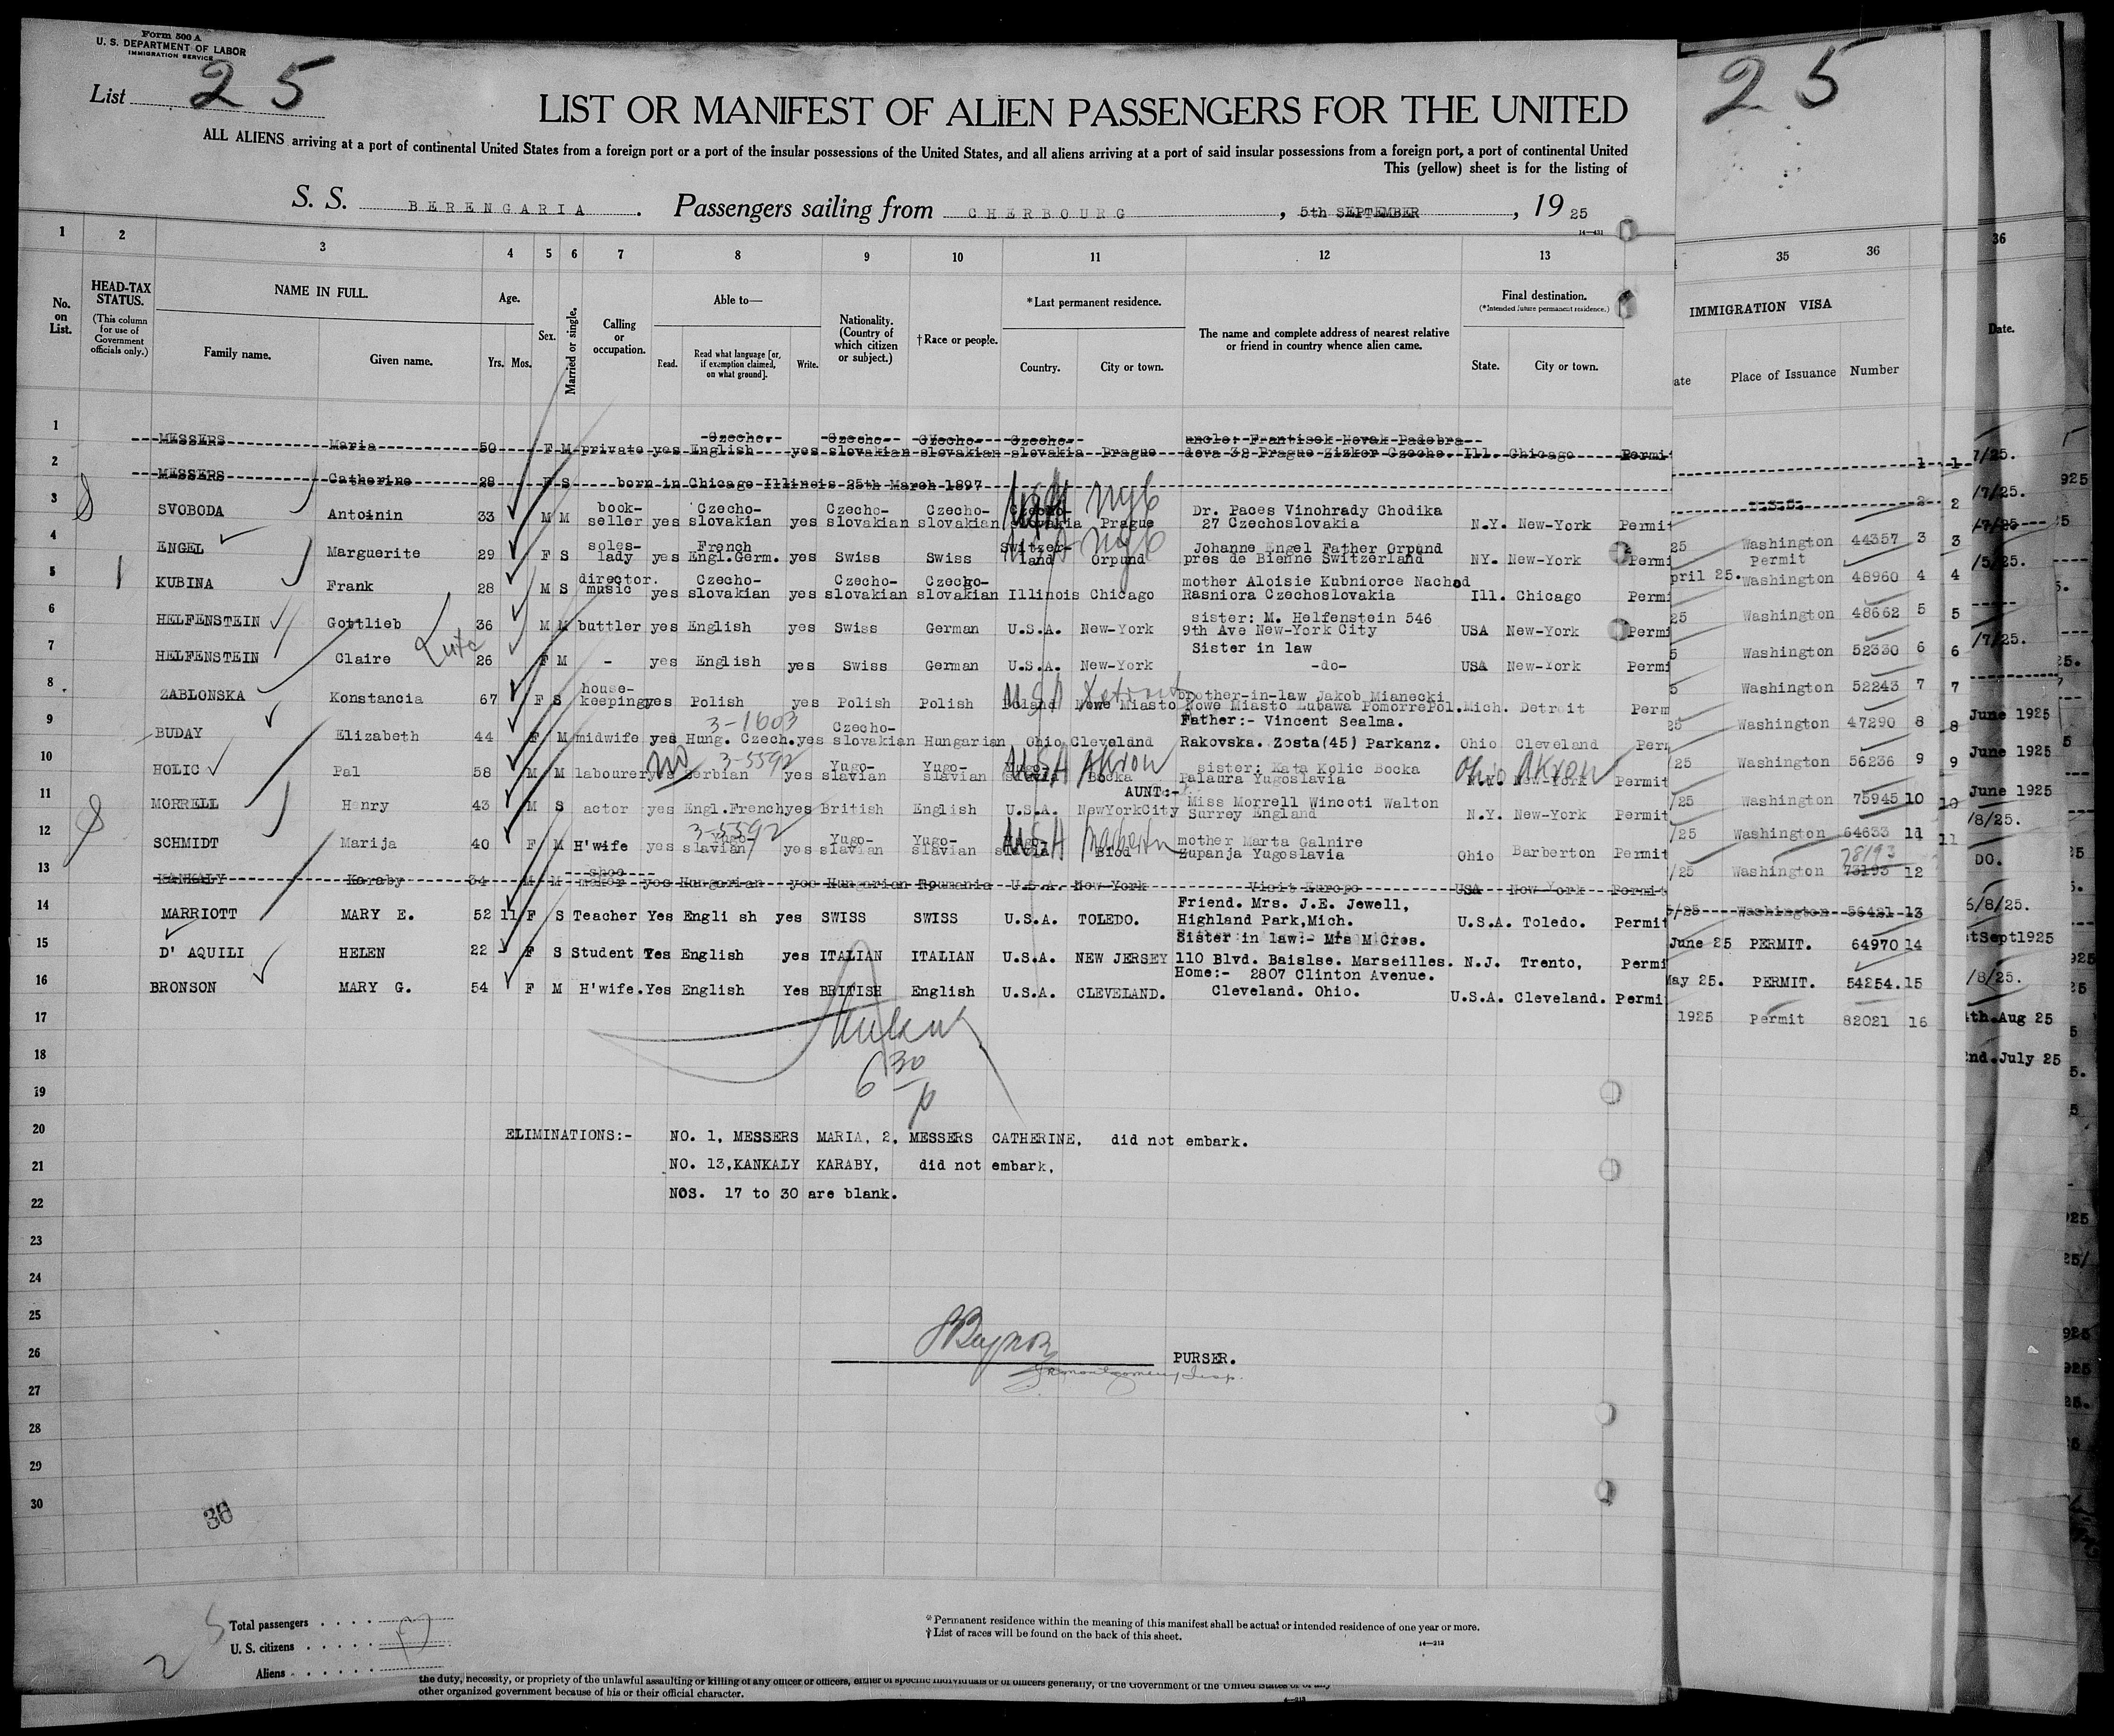 Form 500 A
U. S. DEPARTMENT OF LABOR
IMMIGRATION SERVICE
List 25
25
LIST OR MANIFEST OF ALIEN PASSENGERS FOR THE UNITED
ALL ALIENS arriving at a port of continental United States from a foreign port or a port of the insular possessions of the United States, and all aliens arriving at a port of said insular possessions from a foreign port, a port of continental United
This (yellow) sheet is for the listing of
S. S. BERENGARIA. Passengers sailing from CHERBOURG, 5th SEPTEMBER, 19 25
14—431
1 2 3 4 5 6 7 8 9 10 11 12 13 35 36 36
No. on List.
HEAD-TAX STATUS.
(This column for use of Government officials only.)
NAME IN FULL.
Family name. Given name.
Age.
Yrs. Mos.
Sex.
Married or single.
Calling or occupation.
Able to—
Read. Read what language [or, if exemption claimed, on what ground]. Write.
Nationality. (Country of which citizen or subject.)
†Race or people.
*Last permanent residence.
Country. City or town.
The name and complete address of nearest relative or friend in country whence alien came.
Final destination.
(*Intended future permanent residence.)
State. City or town.
IMMIGRATION VISA
ate Place of Issuance Number
Date.
1 MESSERS Maria 50 F M private yes Czecho- English yes Czecho-slovakian Czecho-slovakian Czecho-slovakia Prague uncle: Frantisek Novak Padebra-dova 32 Prague Zizkor Czecho. Ill. Chicago Permit 1 1 7/25.
2 MESSERS Catherine 28 F S born in Chicago Illinois 25th March 1897 2 2 /7/25. 925
3 SVOBODA Antoinin 33 M M book-seller yes Czecho-slovakian yes Czecho-slovakian Czecho-slovakian Czecho-slovakia Prague Dr. Paces Vinohrady Chodika 27 Czechoslovakia N.Y. New-York Permit 25 Washington 44357 3 3 /7/25
4 ENGEL Marguerite 29 F S soles-lady yes French Engl.Germ. yes Swiss Swiss Switzer-land Orpund Johanne Engel Father Orpund pres de Bienne Switzerland NY. New-York Permi pril 25. Permit Washington 48960 4 4 /5/25.
5 KUBINA Frank 28 M S director. music yes Czecho-slovakian yes Czecho-slovakian Czecho-slovakian Illinois Chicago mother Aloisie Kubniorce Nachod Rasniora Czechoslovakia Ill. Chicago Permi 25 Washington 48662 5 5
6 HELFENSTEIN Gottlieb 36 M M buttler yes English yes Swiss German U.S.A. New-York sister: M. Helfenstein 546 9th Ave New-York City USA New-York Permi 5 Washington 52330 6 6 /7/25.
7 HELFENSTEIN Claire 26 F M - yes English yes Swiss German U.S.A. New-York Sister in law -do- USA New-York Permi 5 Washington 52243 7 7
8 ZABLONSKA Konstancia 67 F S house-keeping yes Polish yes Polish Polish USA Detroit Poland Nowe Miasto brother-in-law Jakob Mianecki Nowe Miasto Lubawa PomorrePol. Mich. Detroit Perm 25 Washington 47290 8 8 June 1925
9 BUDAY Elizabeth 44 F M midwife yes 3-1603 Hung. Czech. yes Czecho-slovakian Hungarian Ohio Cleveland Father:- Vincent Sealma. Rakovska. Zosta(45) Parkanz. Ohio Cleveland Per /25 Washington 56236 9 9 June 1925
10 HOLIC Pal 58 M M labourer yes no 3-5592 Serbian yes Yugo-slavian Yugo-slavian USA Akron Yugo-slavia Bocka sister: Kata Kolic Bocka Palaura Yugoslavia Ohio Akron N.Y. New-York Permit /25 Washington 75945 10 10 June 1925
11 MORRELL Henry 43 M S actor yes Engl.French yes British English U.S.A. NewYorkCity AUNT:- Miss Morrell Wincoti Walton Surrey England N.Y. New-York Permit /25 Washington 64633 11 11 /8/25.
12 SCHMIDT Marija 40 F M H'wife yes 3-5592 Yugo-slavian yes Yugo-slavian Yugo-slavian USA Barberton Yugo-slavia Biod mother Marta Galnire Zupanja Yugoslavia Ohio Barberton Permit /25 Washington 78193 73193 12 DO.
13 KANKALY Karaby 34 M M shoe-maker yes Hungarian yes Hungarian Roumania U.S.A. New York Visit Europe USA New York Permit 5/25 Washington 56421 13 6/8/25.
14 MARRIOTT MARY E. 52 11 F S Teacher Yes English yes SWISS SWISS U.S.A. TOLEDO. Friend. Mrs. J.E. Jewell, Highland Park, Mich. U.S.A. Toledo. Permit June 25 PERMIT. 64970 14 tSept1925
15 D' AQUILI HELEN 22 F S Student Yes English yes ITALIAN ITALIAN U.S.A. NEW JERSEY Sister in law:- Mrs M Cros. 110 Blvd. Baislse. Marseilles. N.J. Trento, Permi May 25. PERMIT. 54254. 15 /8/25.
16 BRONSON MARY G. 54 F M H'wife. Yes English Yes BRITISH English U.S.A. CLEVELAND. Home:- 2807 Clinton Avenue. Cleveland. Ohio. U.S.A. Cleveland. Permi 1925 Permit 82021 16 4th.Aug 25
2nd.July 25
17
18
6 30/p
19
20 ELIMINATIONS:- NO. 1, MESSERS MARIA, 2, MESSERS CATHERINE, did not embark.
21 NO. 13, KANKALY KARABY, did not embark,
22 NOS. 17 to 30 are blank.
23
24
25
26 PURSER.
27
28
29
30
36
Total passengers
U. S. citizens
Aliens
2
*Permanent residence within the meaning of this manifest shall be actual or intended residence of one year or more.
†List of races will be found on the back of this sheet.
14—313
the duty, necessity, or propriety of the unlawful assaulting or killing of any officer or officers, either of specific individuals or of officers generally, of the Government of the United States or of any
other organized government because of his or their official character.